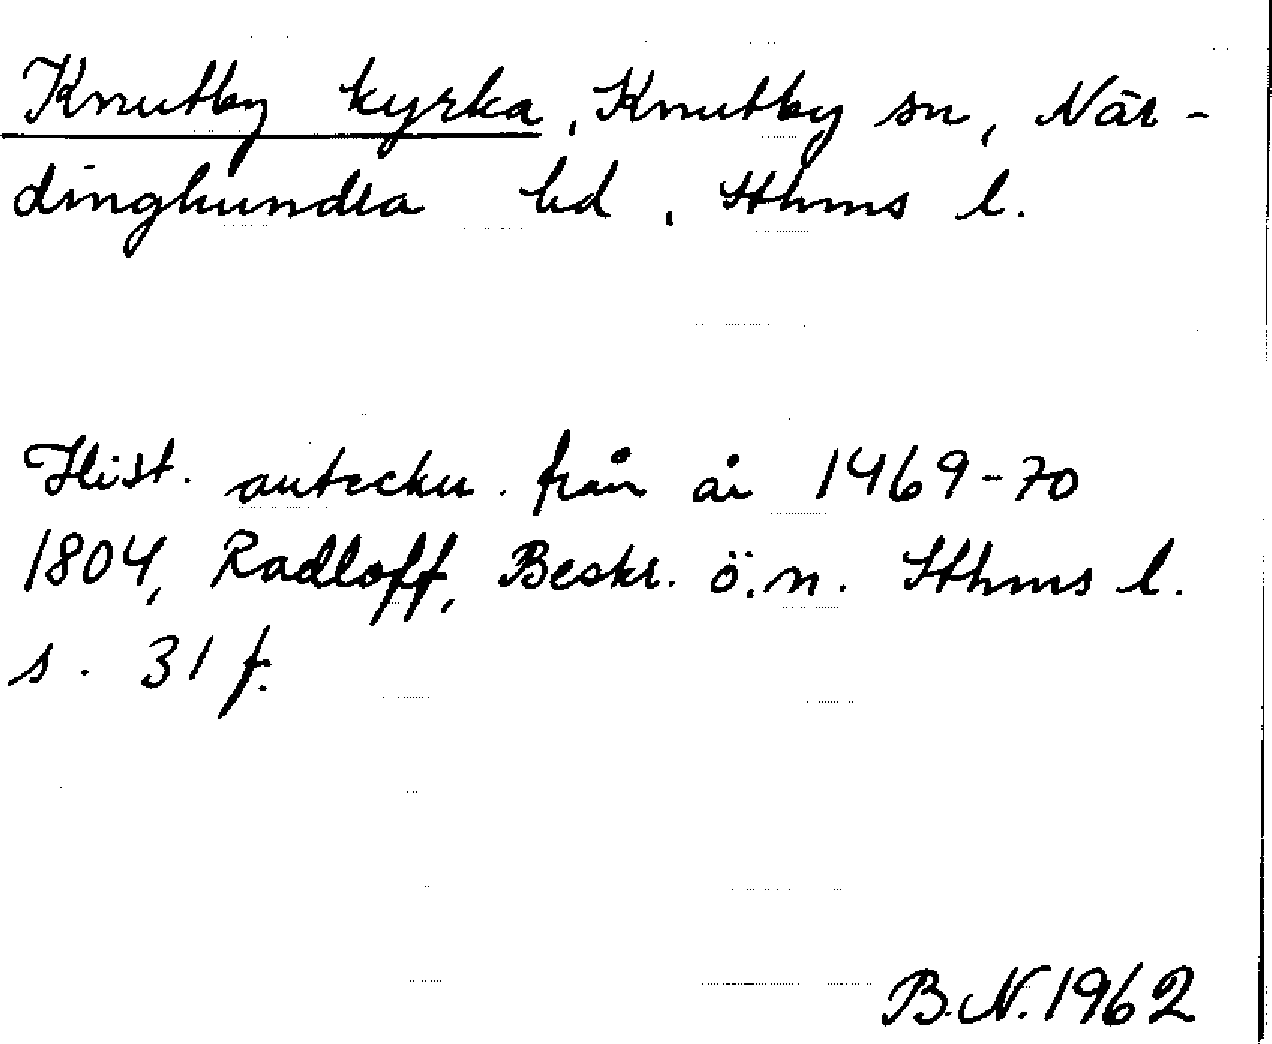 Knutby kyrka, Knutby sn, När-
dinghundra hd, Sthms l.
Hist. anteckn. från år 1469-70
1804, Radloff, Beskr. ö. n. Sthms l.
s. 31 f.
B.N. 1962